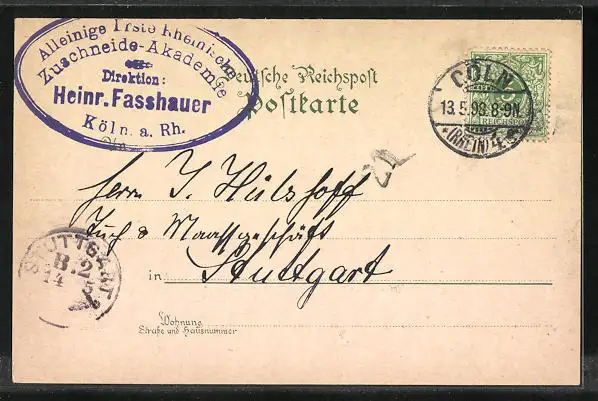 Alleinige Erste Rheinische
Zuschneide-Akademie
Direktion:
Heinr. Fasshauer
Köln a. Rh.
Deutsche Reichspost
Postkarte
CÖLN
13.5.98.8-9N.
*(RHEIN)4
REICHSPOST
An
Herrn J. Hülshoff
Tuch & Maassgeschäft
in Stuttgart
STUTTGART
14
Wohnung
Straße und Hausnummer